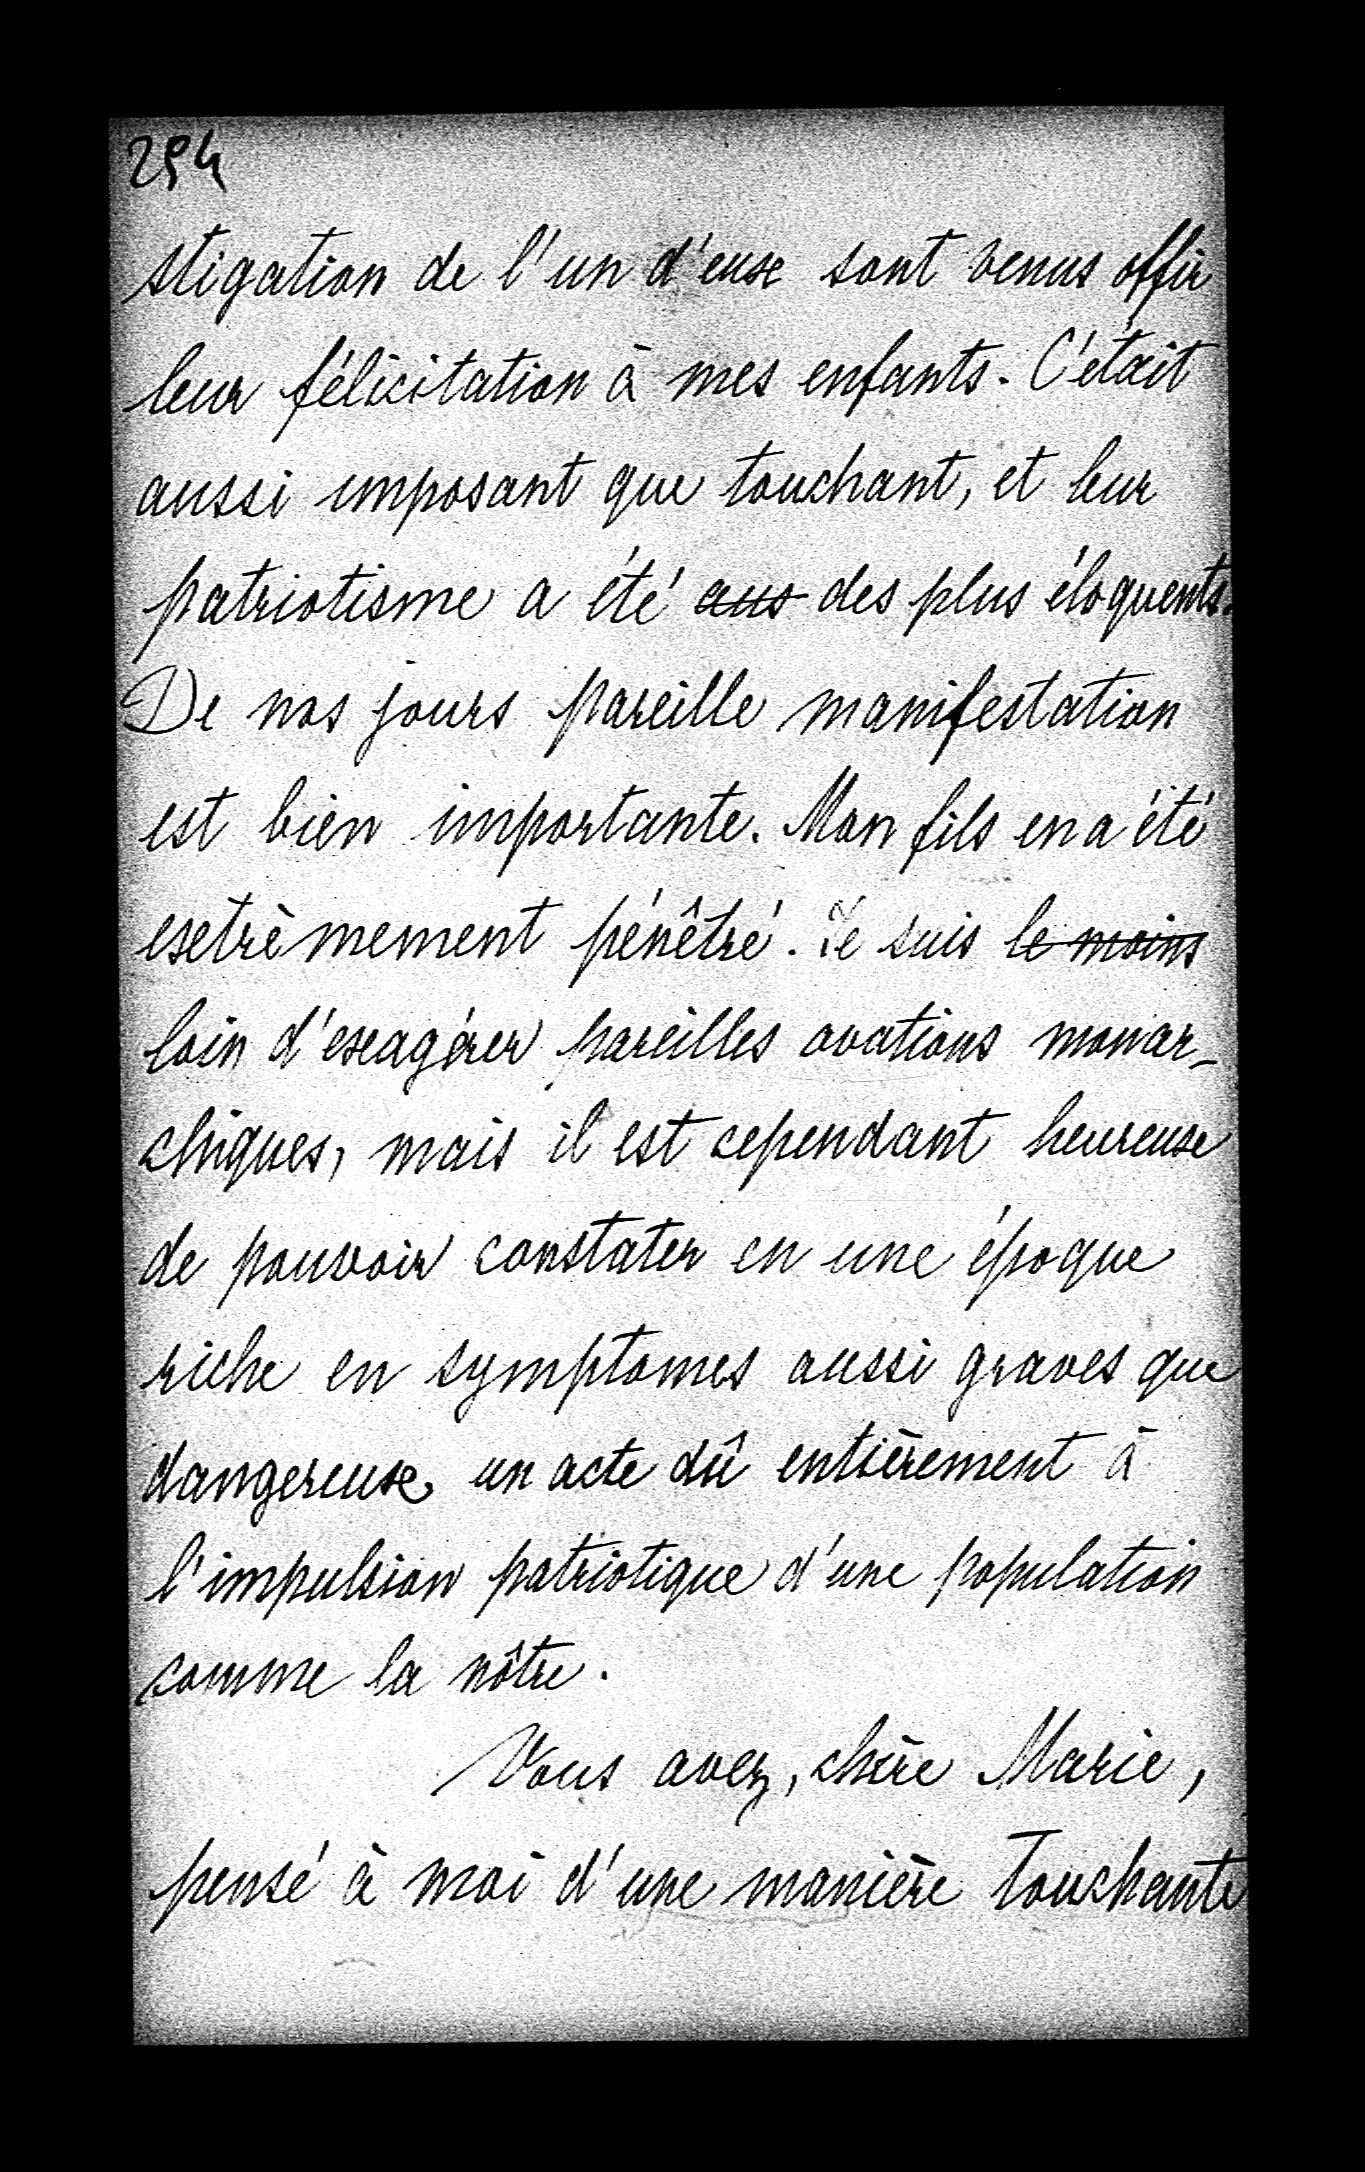 294
stigation de l'un d'eux sont venus offir
leur félicitation à mes enfants. C'était
aussi imposant que touchant, et leur
patriotisme a été aus des plus éloquents.
De nos jours pareille manifestation
est bien importante. Mon fils en a été
extrèmement pénêtré. Je suis le moins
loin d'exagérer pareilles ovations monar-
chiques, mais il est cependant heureux
de pouvoir constater en une époque
riche en symptomes aussi graves que
dangereux un acte dû entièrement à
l'impulsion patriotique d'une population
comme la nôtre.
Vous avez, chère Marie,
pensé à moi d'une manière touchante